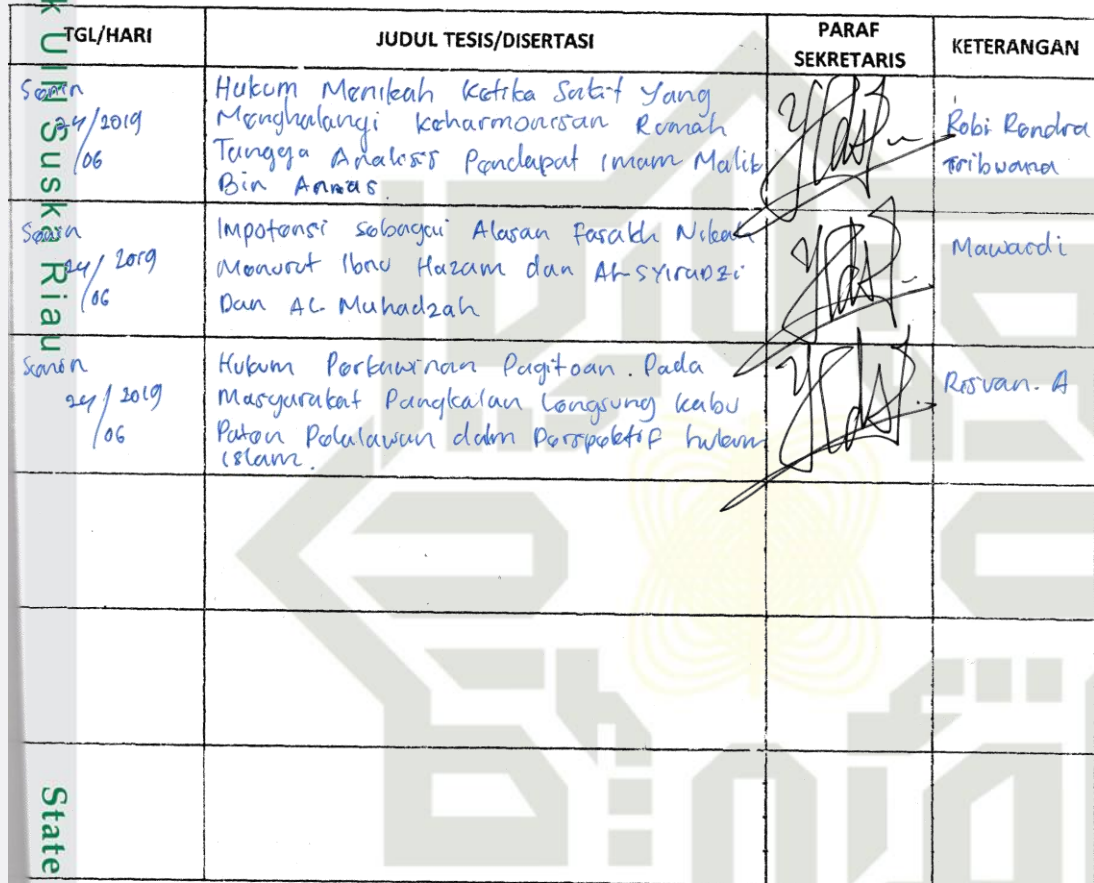 TGL/HARI
JUDUL TESIS/DISERTASI
PARAF
SEKRETARIS
KETERANGAN
Senin
24/2019
/06
Hukum Menikah Ketika Sakit Yang
Menghalangi keharmonisan Rumah
Tangga Analisis Pendapat Imam Malik
Bin Annas
Robi Rendra
Tribwana
Senin
24/2019
/06
Impotensi sebagai Alasan fasakh Nikah
Menurut Ibnu Hazam dan AL-SYIRADZI
Dan AL Muhadzah
Mawardi
Senin
24/2019
/06
Hukum Perkawinan Pagitoan. Pada
Masyarakat Pangkalan Langsung kabu
Paten Pelalawan dalm Perspektif hukum
islam.
Risvan. A
k UIN Suska Riau
State